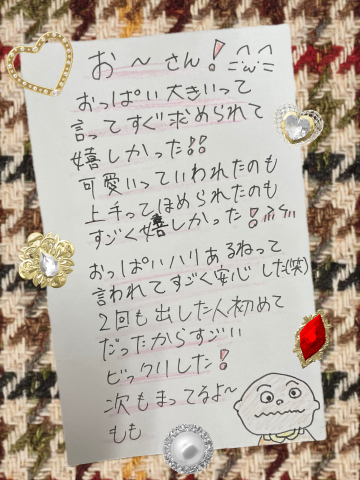 お〜さん！
おっぱい大きいって
言ってすぐ求められて
嬉しかった!!
可愛いっていわれたのも
上手ってほめられたのも
すごく嬉しかった！
おっぱいハリあるねって
言われてすごく安心した(笑)
2回も出した人初めて
だったからすごい
ビックリした！
次もまってるよ〜
もも